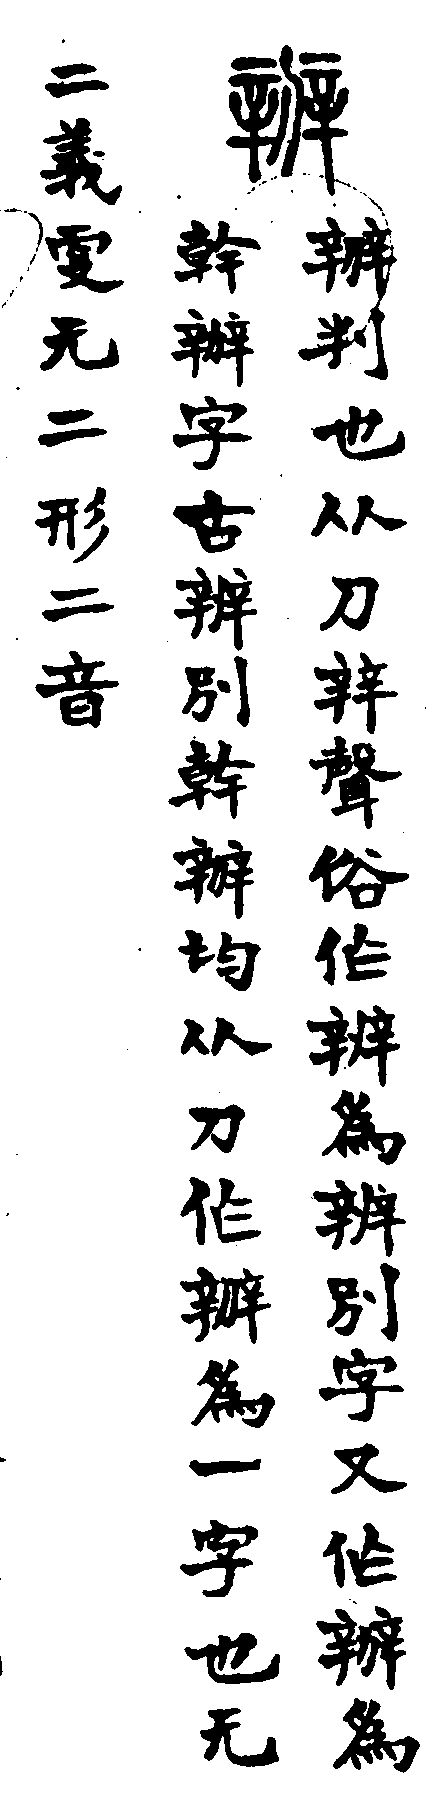 辧
辧判也从刀辡聲俗作辨為辨別字又作辦為
幹辦字古辨別幹辦均从刀作辧為一字也无
二義更无二形二音